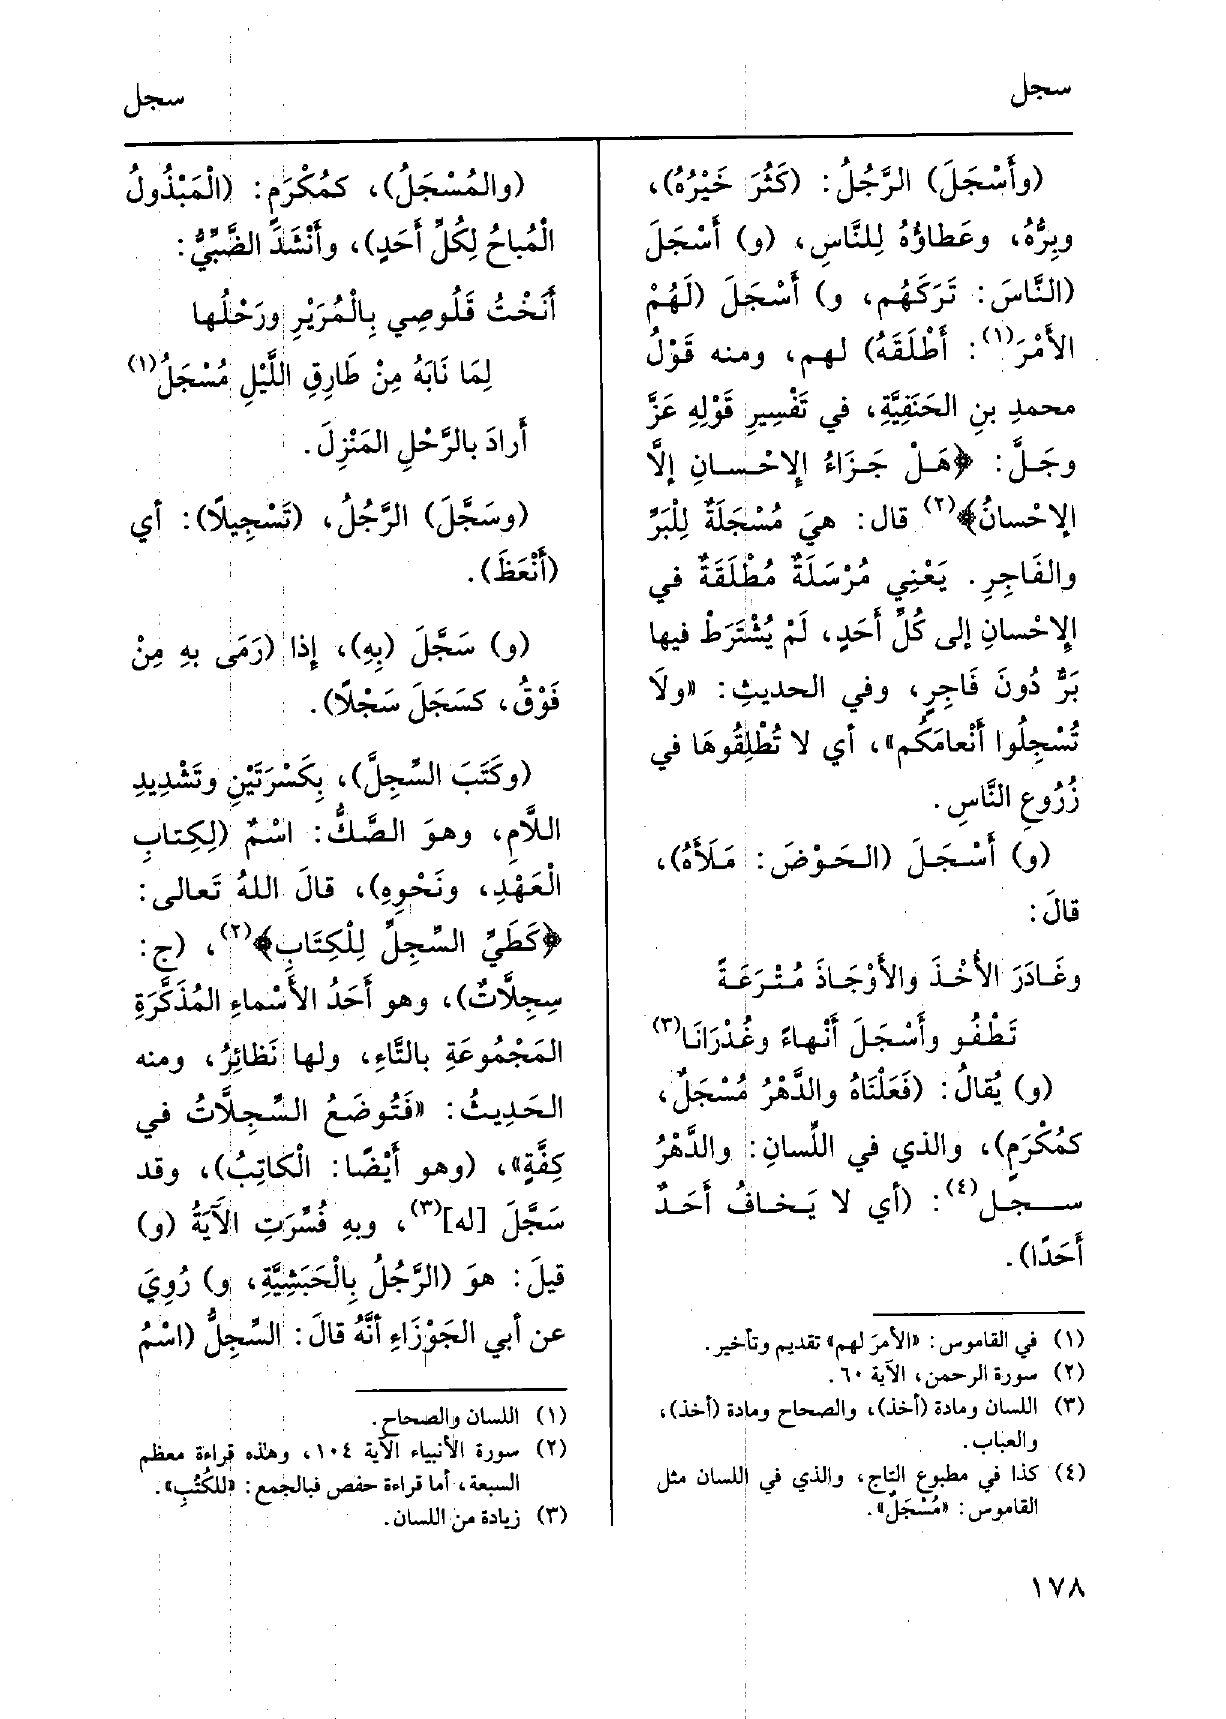 سجل
سجل
(وأَسْجَلَ) الرَّجُلُ: (كَثُرَ خَيْرُهُ)،
وبِرُّهُ، وعَطاؤُهُ لِلنَّاسِ، (و) أَسْجَلَ
(النَّاسَ: تَرَكَهُم، و) أَسْجَلَ (لَهُمْ
الأَمْرَ(١): أَطْلَقَهُ) لهم، ومنه قَوْلُ
محمدِ بنِ الحَنَفِيَّةِ، في تَفْسِيرِ قَوْلِهِ عَزَّ
وجَلَّ: ﴿هَلْ جَزَاءُ الإِحْسانِ إلَّا
الإحْسانُ﴾(٢) قال: هيَ مُسْجَلَةٌ لِلْبَرِّ
والفَاجِرِ. يَعْنِي مُرْسَلَةٌ مُطْلَقَةٌ في
الإِحْسانِ إلى كُلِّ أَحَدٍ، لَمْ يُشْتَرَطْ فيها
بَرٌّ دُونَ فَاجِرٍ، وفي الحديثِ: «ولَا
تُسْجِلُوا أَنْعامَكُم»، أي لا تُطْلِقُوهَا في
زُرُوعِ النَّاسِ.
(و) أَسْجَلَ (الحَوْضَ: مَلَأَهُ)،
قالَ:
وغَادَرَ الأُخْذَ والأَوْجَاذَ مُتْرَعَةً
تَطْفُو وأَسْجَلَ أَنْهاءً وغُدْرَانَا(٣)
(و) يُقالُ: (فَعَلْنَاهُ والدَّهْرُ مُسْجَلٌ،
كمُكْرَمٍ)، والذي في اللِّسانِ: والدَّهْرُ
سجل(٤): (أي لا يَخافُ أَحَدٌ
أَحَدًا).
(١) في القاموس: «الأمرَ لهم» تقديم وتأخير.
(٢) سورة الرحمن، الآية ٦٠.
(٣) اللسان ومادة (أخذ)، والصحاح ومادة (أخذ)،
والعباب.
(٤) كذا في مطبوع التاج، والذي في اللسان مثل
القاموس: «مُسْجَلٌ».
(والمُسْجَلُ)، كمُكْرَمٍ: (الْمَبْذُولُ
الْمُباحُ لِكُلِّ أَحَدٍ)، وأَنْشَدَ الضَّبِّيُّ:
أَنَخْتُ قَلُوصِي بِالْمُرَيْرِ ورَحْلُها
لِمَا نَابَهُ مِنْ طَارِقِ اللَّيْلِ مُسْجَلُ(١)
أَرادَ بالرَّحْلِ المَنْزِلَ.
(وسَجَّلَ) الرَّجُلُ، (تَسْجِيلًا): أي
(أَنْعَظَ).
(و) سَجَّلَ (بِهِ)، إذا (رَمَى بهِ مِنْ
فَوْقُ، كسَجَلَ سَجْلًا).
(وكَتَبَ السِّجِلَّ)، بِكَسْرَتَيْنِ وتَشْدِيدِ
اللَّامِ، وهوَ الصَّكُّ: اسْمٌ (لِكِتابِ
الْعَهْدِ، ونَحْوِهِ)، قالَ اللهُ تَعالى:
﴿كَطَيِّ السِّجِلِّ لِلْكِتَابِ﴾(٢)، (ج:
سِجِلَّاتٌ)، وهو أَحَدُ الأَسْماءِ المُذَكَّرَةِ
المَجْمُوعَةِ بالتَّاءِ، ولها نَظائِرُ، ومنه
الحَدِيثُ: «فَتُوضَعُ السِّجِلَّاتُ في
كِفَّةٍ»، (وهو أَيْضًا: الْكاتِبُ)، وقد
سَجَّلَ [له](٣)، وبِهِ فُسِّرَتِ الآيَةُ (و)
قيلَ: هوَ (الرَّجُلُ بِالْحَبَشِيَّةِ، و) رُوِيَ
عن أبي الجَوْزَاءِ أنَّهُ قالَ: السِّجِلُّ (اسْمُ
(١) اللسان والصحاح.
(٢) سورة الأنبياء الآية ١٠٤، وهذه قراءة معظم
السبعة، أما قراءة حفص فبالجمع: «للكُتُبِ».
(٣) زيادة من اللسان.
١٧٨